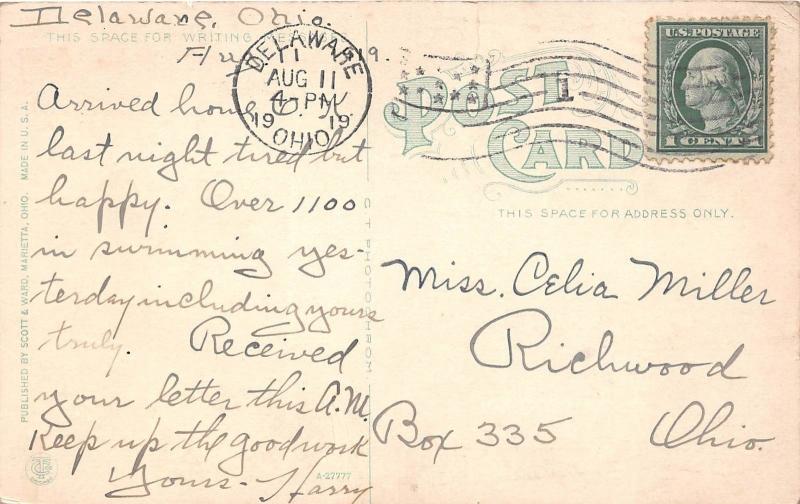 Delaware, Ohio.
THIS SPACE FOR WRITING MESSAGE
Arrived home O.K.
last night tired but
happy. Over 1100
in swimming yes-
terday including yours
truly. Received
your letter this A.M.
Keep up the goodwork
Yours - Harry
DELAWARE
11
AUG 11
4-PM
19 19
OHIO
POST CARD
THIS SPACE FOR ADDRESS ONLY.
U.S. POSTAGE
1 CENT 1
Miss. Celia Miller
Richwood
Box 335 Ohio.
PUBLISHED BY SCOTT & WARD, MARIETTA, OHIO. MADE IN U.S.A.
C T PHOTOCHROM
A-27777